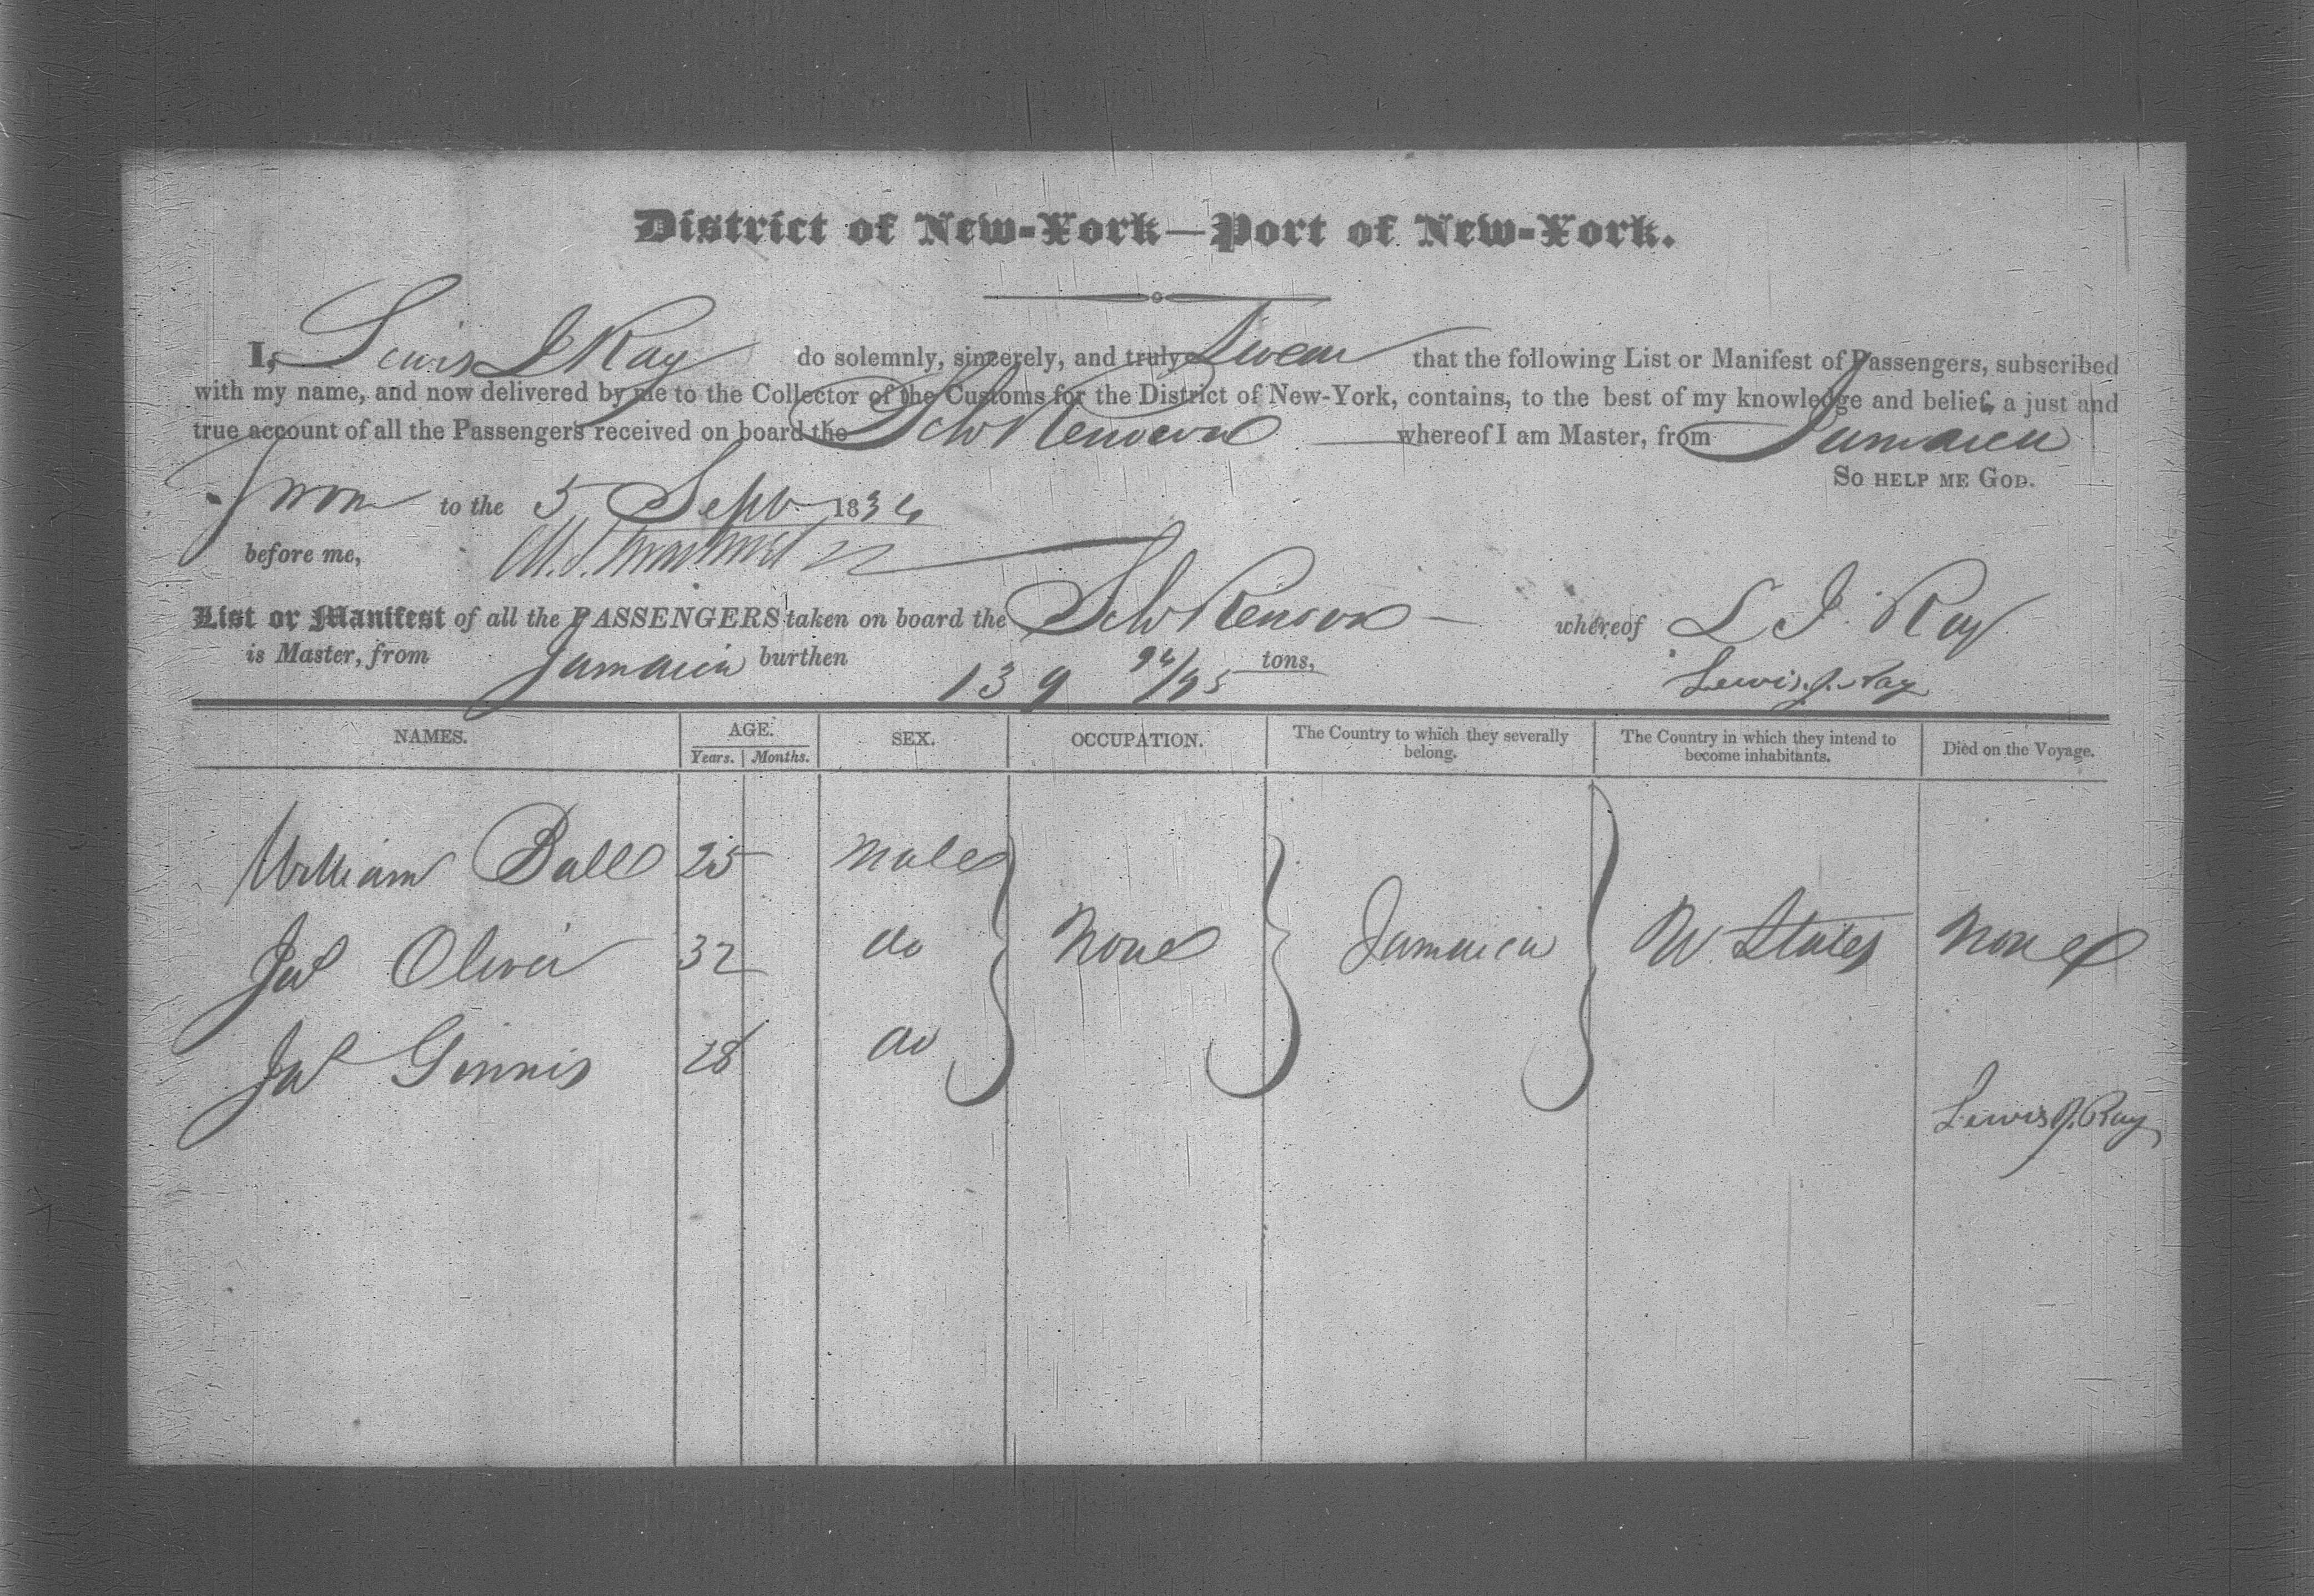 District of New-York—Port of New-York.
I, Lewis J Ray do solemnly, sincerely, and truly Swear that the following List or Manifest of Passengers, subscribed
with my name, and now delivered by me to the Collector of the Customs for the District of New-York, contains, to the best of my knowledge and belief, a just and
true account of all the Passengers received on board the Schr whereof I am Master, from Jamaica
So HELP ME GOD.
Sworn to the 5 Sept 183
before me,
List or Manifest of all the PASSENGERS taken on board the Schr whereof L J. Ray
is Master, from Jamaica burthen 139 /95 tons,
Lewis J. Ray
NAMES. AGE. SEX. OCCUPATION. The Country to which they severally belong. The Country in which they intend to become inhabitants. Died on the Voyage.
Years. Months.
William Ball 25 male
Jas Oliver 32 do None Jamaica U. States None
Jas Ginnis 28 do
Lewis J. Ray